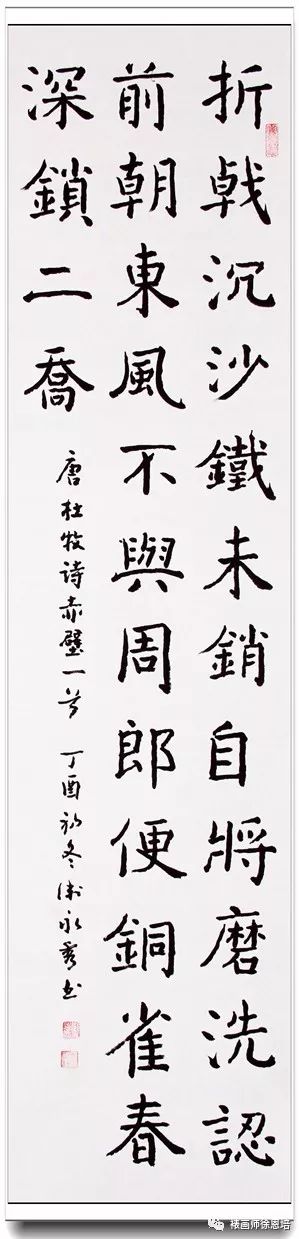 折戟沉沙鐵未銷自將磨洗認
前朝東風不與周郎便銅雀春
深鎖二喬
唐杜牧诗赤壁一首 丁酉初冬 永秀书
裱画师徐恩培